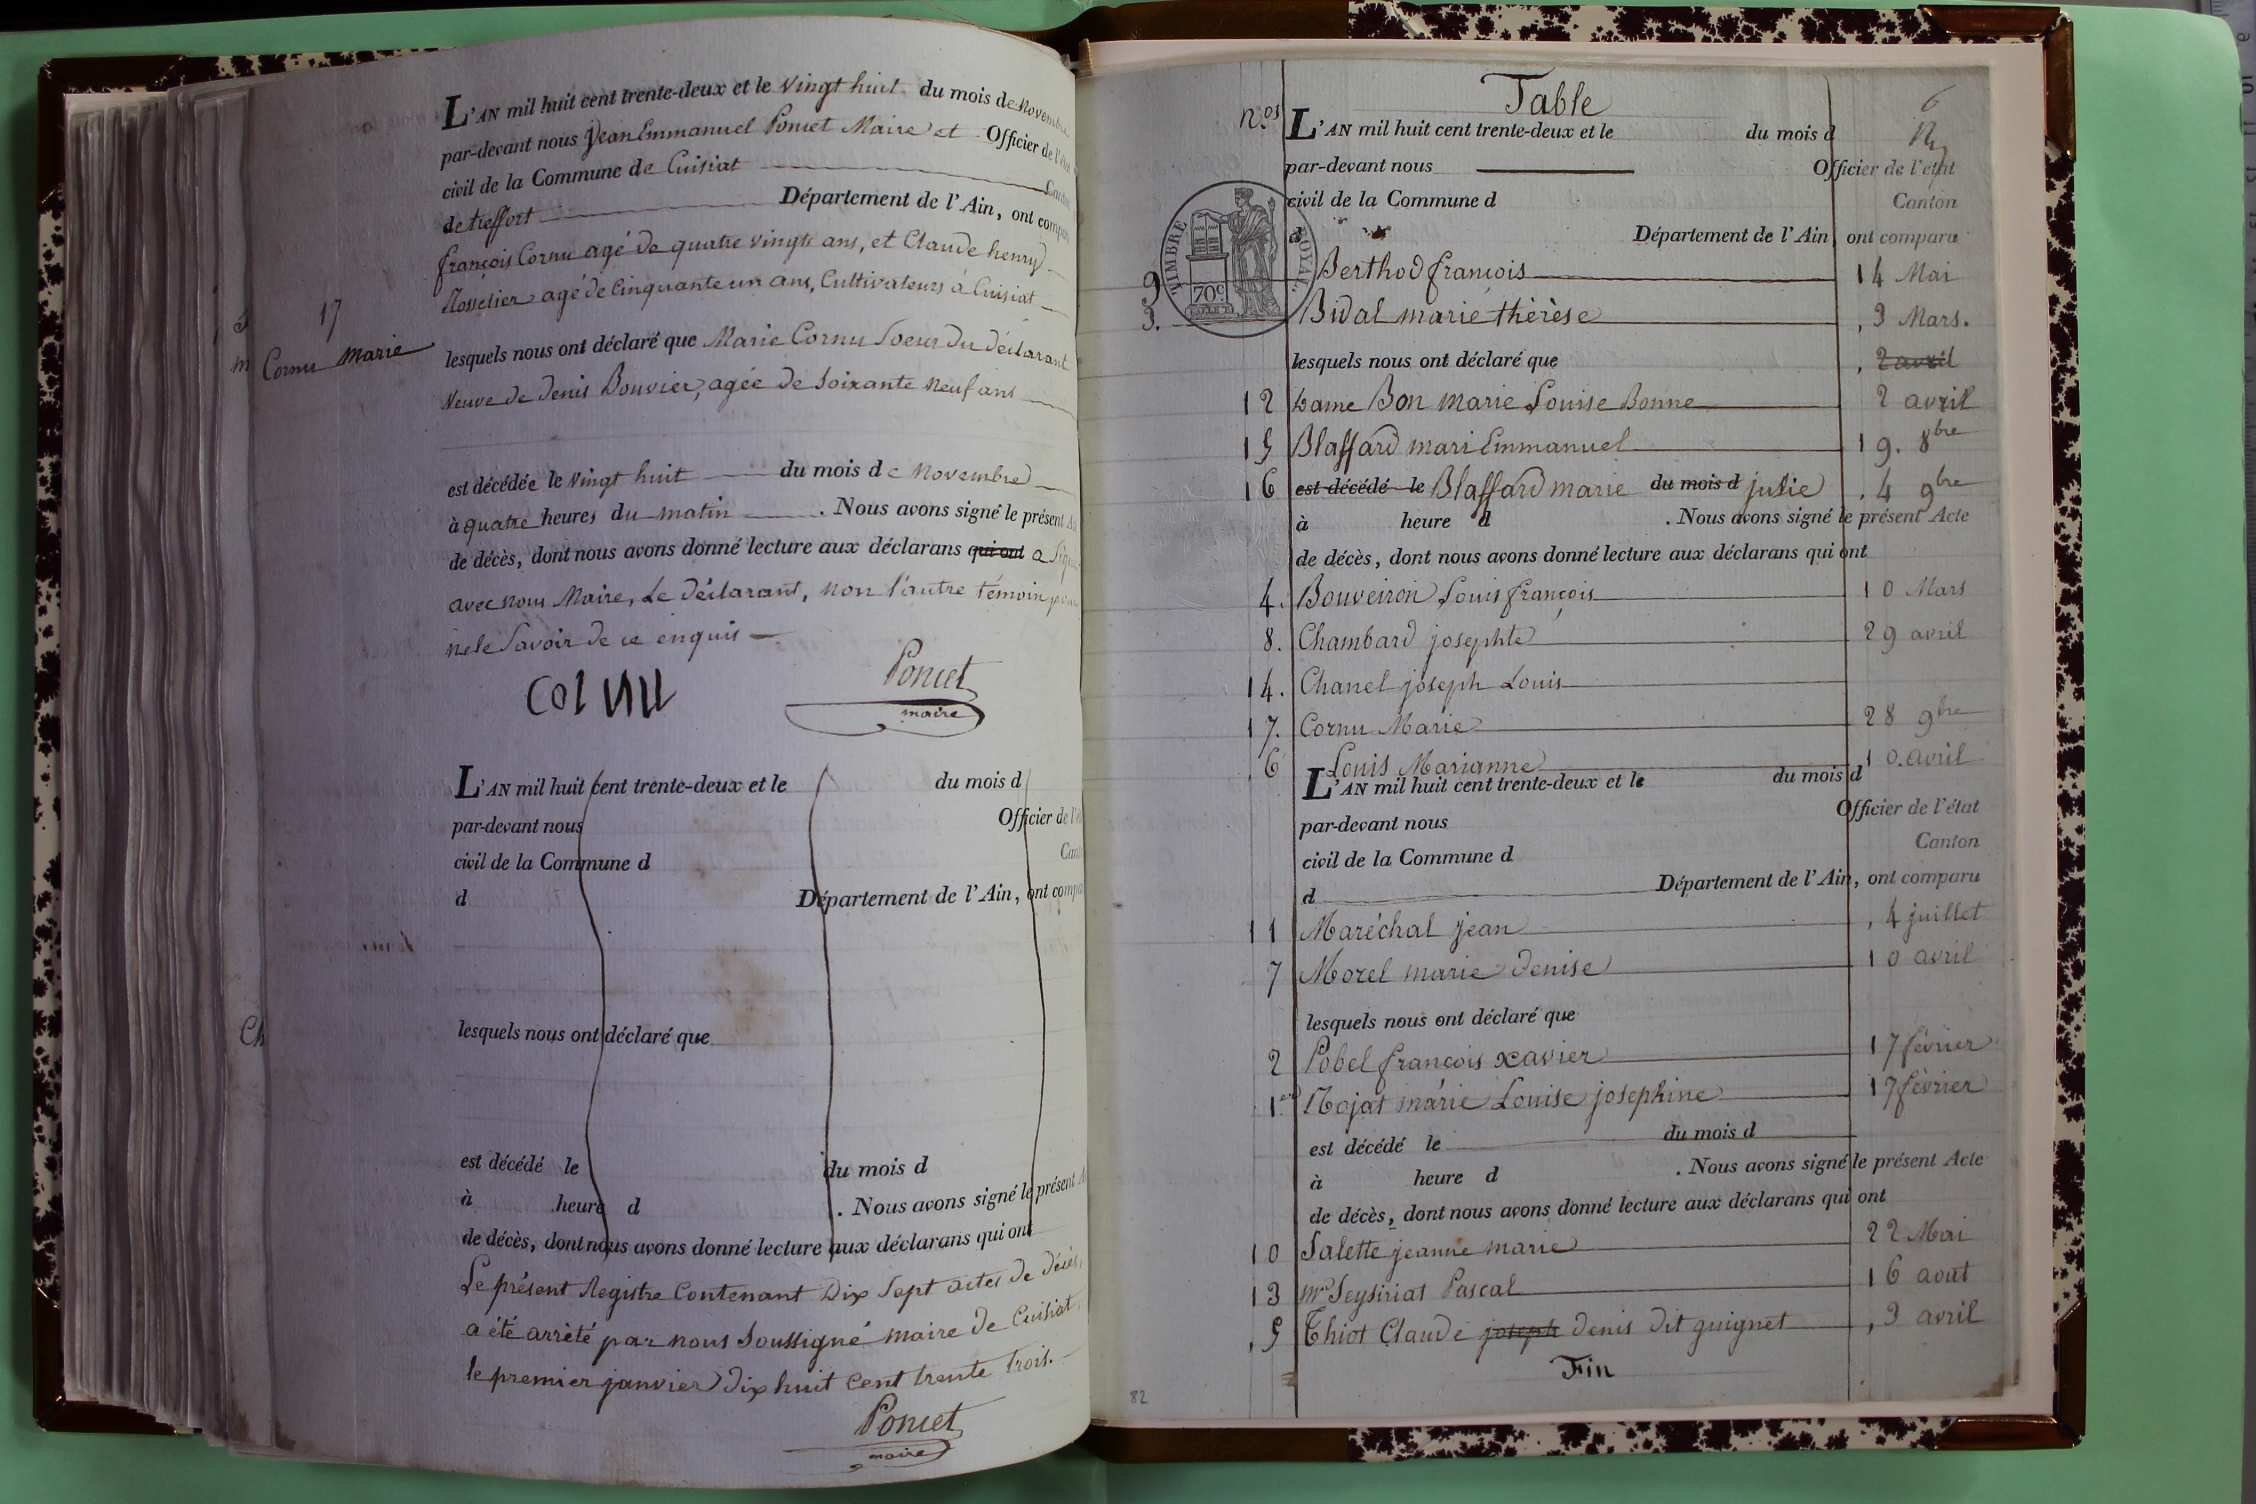 L'AN mil huit cent trente-deux et le vingt huit du mois de Novembre
par-devant nous Jean Emmanuel Poncet Maire et Officier de l'état
civil de la Commune de Cuisiat
de treffort Département de l'Ain, ont comparu
françois Cornu agé de quatre vingts ans, et Claude henry
agé de Cinquante un ans, Cultivateurs à Cuisiat
17
Cornu Marie
lesquels nous ont déclaré que Marie Cornu Soeur du déclarant
Veuve de denis Bouvier, agée de Soixante Neuf ans
est décédée le vingt huit du mois de Novembre
à quatre heures du matin . Nous avons signé le présent
de décès, dont nous avons donné lecture aux déclarans qui ont a signé
avec nous Maire, Le déclarant, non l'autre témoin pour
ne le Savoir de ce enquis
Cornu
Poncet
maire
L'AN mil huit cent trente-deux et le du mois d
par-devant nous Officier de l'
civil de la Commune d
d Département de l'Ain, ont compa
lesquels nous ont déclaré que
est décédé le du mois d
à heure d . Nous avons signé le présent
de décès, dont nous avons donné lecture aux déclarans qui ont
Le présent Registre Contenant Dix Sept actes de décès,
a été arrèté par nous Soussigné maire de Cuisiat,
le premier janvier Dix huit cent trente trois.
Poncet
maire
Table
6
N.os L'AN mil huit cent trente-deux et le du mois d
par-devant nous Officier de l'état
civil de la Commune d Canton
d Département de l'Ain, ont comparu
TIMBRE ROYAL
70c
9 Berthod françois 14 Mai
3. Bidal marie thérèse , 3 Mars.
lesquels nous ont déclaré que , 2 avril
12 Dame Bon marie Louise Bonne 2 avril
15 Blaffard mari Emmanuel 19. 8bre
16 est décédé le Blaffard marie du mois d julie , 4 9bre
à heure d . Nous avons signé le présent Acte
de décès, dont nous avons donné lecture aux déclarans qui ont
4. Bouveiron Louis françois 10 Mars
8. Chambard josephte 29 avril
14. Chanel joseph Louis
17. Cornu Marie 28 9bre
6 Louis Marianne 10. avril
L'AN mil huit cent trente-deux et le du mois d
par-devant nous Officier de l'état
civil de la Commune d Canton
d Département de l'Ain, ont comparu
11 Maréchal jean , 4 juillet
7 Morel marie denise 10 avril
lesquels nous ont déclaré que
2 Pobel françois xavier 17 février
1.er Rojat marie Louise josephine 17 février
est décédé le du mois d
à heure d . Nous avons signé le présent Acte
de décès, dont nous avons donné lecture aux déclarans qui ont
10 Salette jeanne marie 22 Mai
13 mr Seysiriat Pascal 16 août
, 5 Thiot Claude joseph denis dit guignet , 3 avril
Fin
82